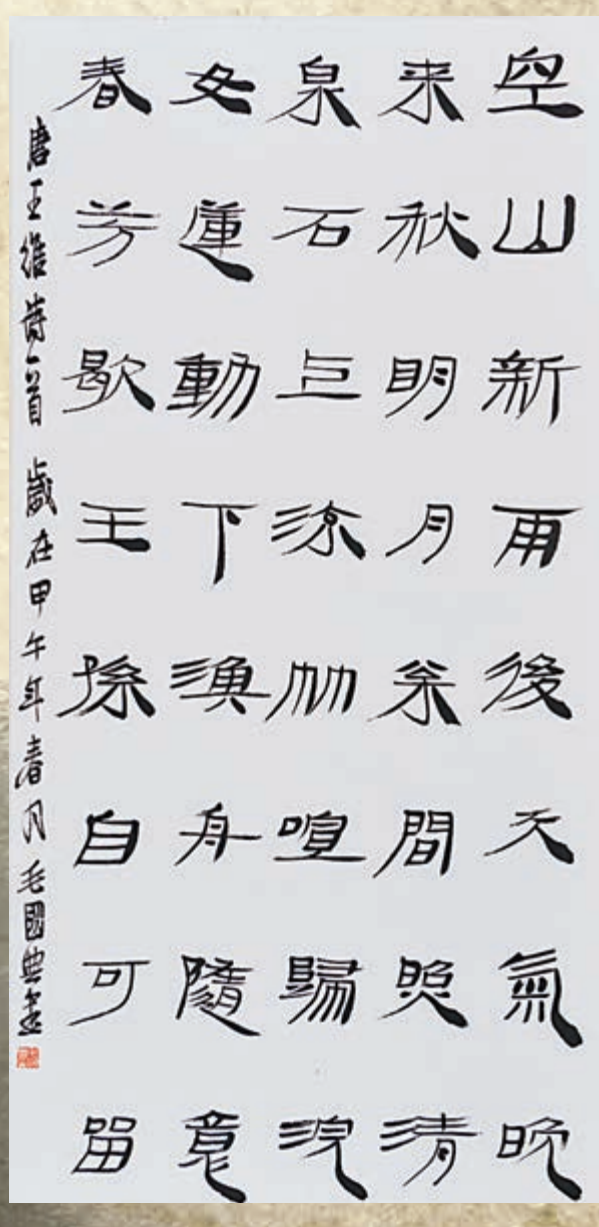 空山新雨後天氣晚
来秋明月松間照清
泉石上流竹喧歸浣
女蓮動下漁舟隨意
春芳歇王孫自可留
唐王維詩一首 歲在甲午年春月毛國典書